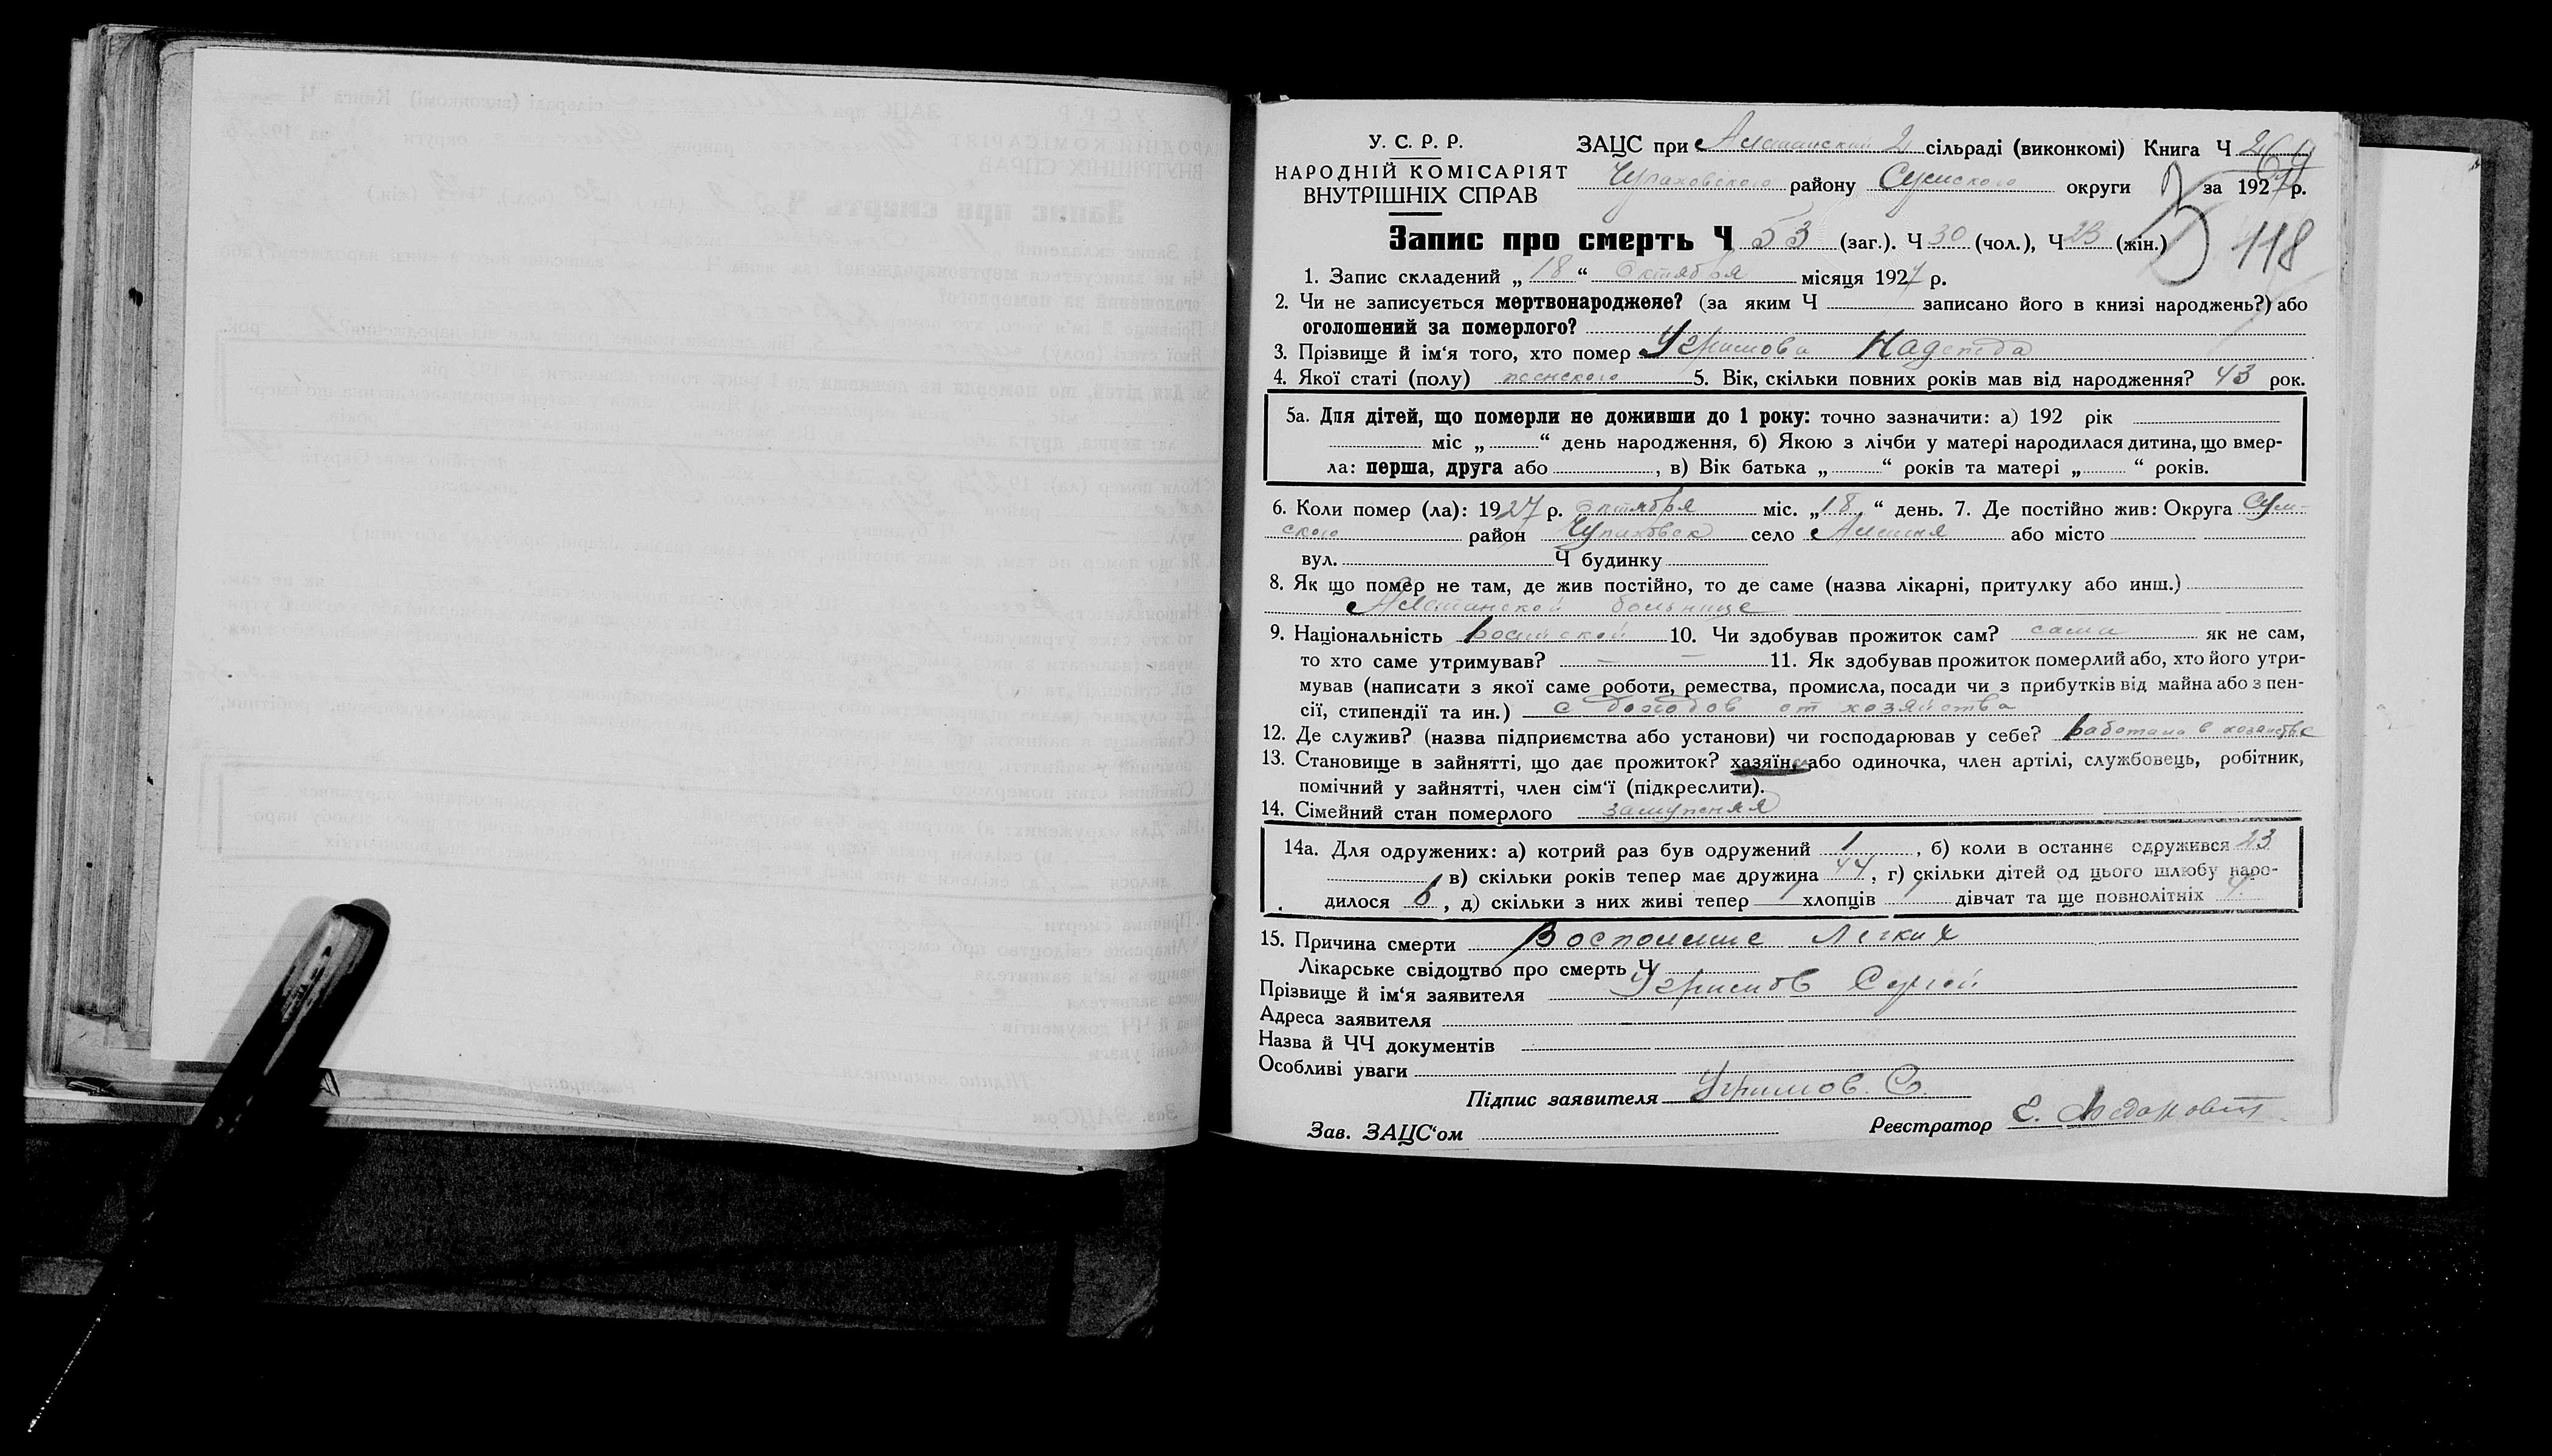 У. С. Р. Р.
НАРОДНІЙ КОМІСАРІЯТ
ВНУТРІШНІХ СПРАВ
ЗАЦС при Алешанский 2 сільраді (виконкомі) Книга Ч
Чупаховского району Сумского округи за 1927 р.
118
Запис про смерть Ч 53 (заг.). Ч 30 (чол.), Ч 23 (жін.)
1. Запис складений „ 18 “ Октября місяця 1927 р.
2. Чи не записується мертвонароджене? (за яким Ч записано його в книзі народжень?) або
оголошений за померлого?
3. Прізвище й ім‘я того, хто помер Угримова Надежда
4. Якої статі (полу) женского 5. Вік, скільки повних років мав від народження? 43 рок.
5а. Для дітей, що померли не доживши до 1 року: точно зазначити: а) 192 рік
міс „ “ день народження, б) Якою з лічби у матері народилася дитина, що вмер-
ла: перша, друга або , в) Вік батька „ “ років та матері „ “ років.
6. Коли помер (ла): 1927 р. Октября міс. „ 18 “ день. 7. Де постійно жив: Округа Сум-
ского район Чупаховск село Алешня або місто
вул. Ч будинку
8. Як що помер не там, де жив постійно, то де саме (назва лікарні, притулку або инш.)
Алешанской больнице
9. Національність 10. Чи здобував прожиток сам? сама як не сам,
то хто саме утримував? — — 11. Як здобував прожиток померлий або, хто його утри-
мував (написати з якої саме роботи, ремества, промисла, посади чи з прибутків від майна або з пен-
сії, стипендії та ин.) с доходов от хозяйства
12. Де служив? (назва підприємства або установи) чи господарював у себе? Работала в
13. Становище в зайнятті, що дає прожиток? хазяїн, або одиночка, член артілі, службовець, робітник,
помічний у зайнятті, член сім‘ї (підкреслити).
14. Сімейний стан померлого замужняя
14а. Для одружених: а) котрий раз був одружений 1 , б) коли в останнє одружився 23
в) скільки років тепер має дружина 44 , г) скільки дітей од цього шлюбу наро-
дилося 6 , д) скільки з них живі тепер хлопців дівчат та ще повнолітніх
15. Причина смерти Восполение Легких
Лікарське свідоцтво про смерть Ч
Прізвище й ім‘я заявителя Угримов Сергей
Адреса заявителя
Назва й ЧЧ документів
Особливі уваги
Підпис заявителя Угримов. С.
Зав. ЗАЦС‘ом Реєстратор Є.